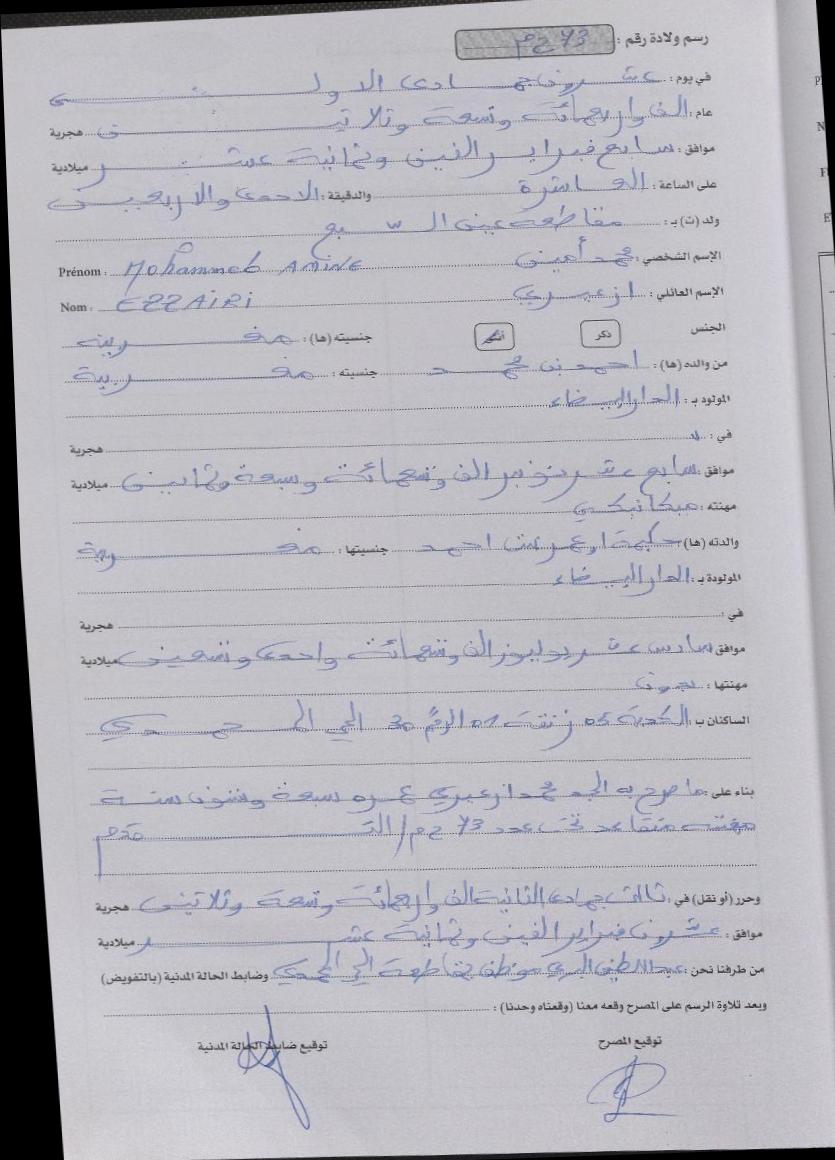 رسم ولادة رقم : 73 ح م
في يوم : عشرون جمادى الاولى
عام : الف واربعمائة وتسعة وثلاثين هجرية
موافق : سابع فبراير الفين وثمانية عشر ميلادية
على الساعة : العاشرة والدقيقة : الاحدى والاربعين
ولد (ت) بـ : مقاطعة عين السبع
الإسم الشخصي : محمد أمين Prénom : Mohammed AMINE
الإسم العائلي : ازعيري Nom : EZZAIRI
الجنس ذكر أنثى جنسيته (ها) : مغربية
من والده (ها) : احمد بن محمد جنسيته : مغربية
المولود بـ : الدار البيضاء
في : هجرية
موافق : سابع عشر نونبر الف وتسعمائة وسبعة وثمانين ميلادية
مهنته : ميكانيكي
والدته (ها) حكيمة احمد جنسيتها : مغربية
المولودة بـ : الدار البيضاء
في : هجرية
موافق سادس عشر يوليوز الف وتسعمائة واحدى وتسعين ميلادية
مهنتها : بدون
الساكنان ب : الكدية 05 زنقة 01 الرقم 30 الحي المحمدي
بناء على : ما صرح به الجد محمد ازعيري عمره سبعة وستون سنة
مهنته متقاعد تحت عدد 73 ح م /
وحرر (أو نقل) في : ثالث جمادى الثانية الف واربعمائة وتسعة وثلاثين هجرية
موافق : عشرون فبراير الفين وثمانية عشر ميلادية
من طرفنا نحن : عبد اللطيف موظف بمقاطعة الحي المحمدي وضابط الحالة المدنية (بالتفويض)
وبعد تلاوة الرسم على المصرح وقعه معنا (وقعناه وحدنا) :
توقيع المصرح توقيع ضابط الحالة المدنية